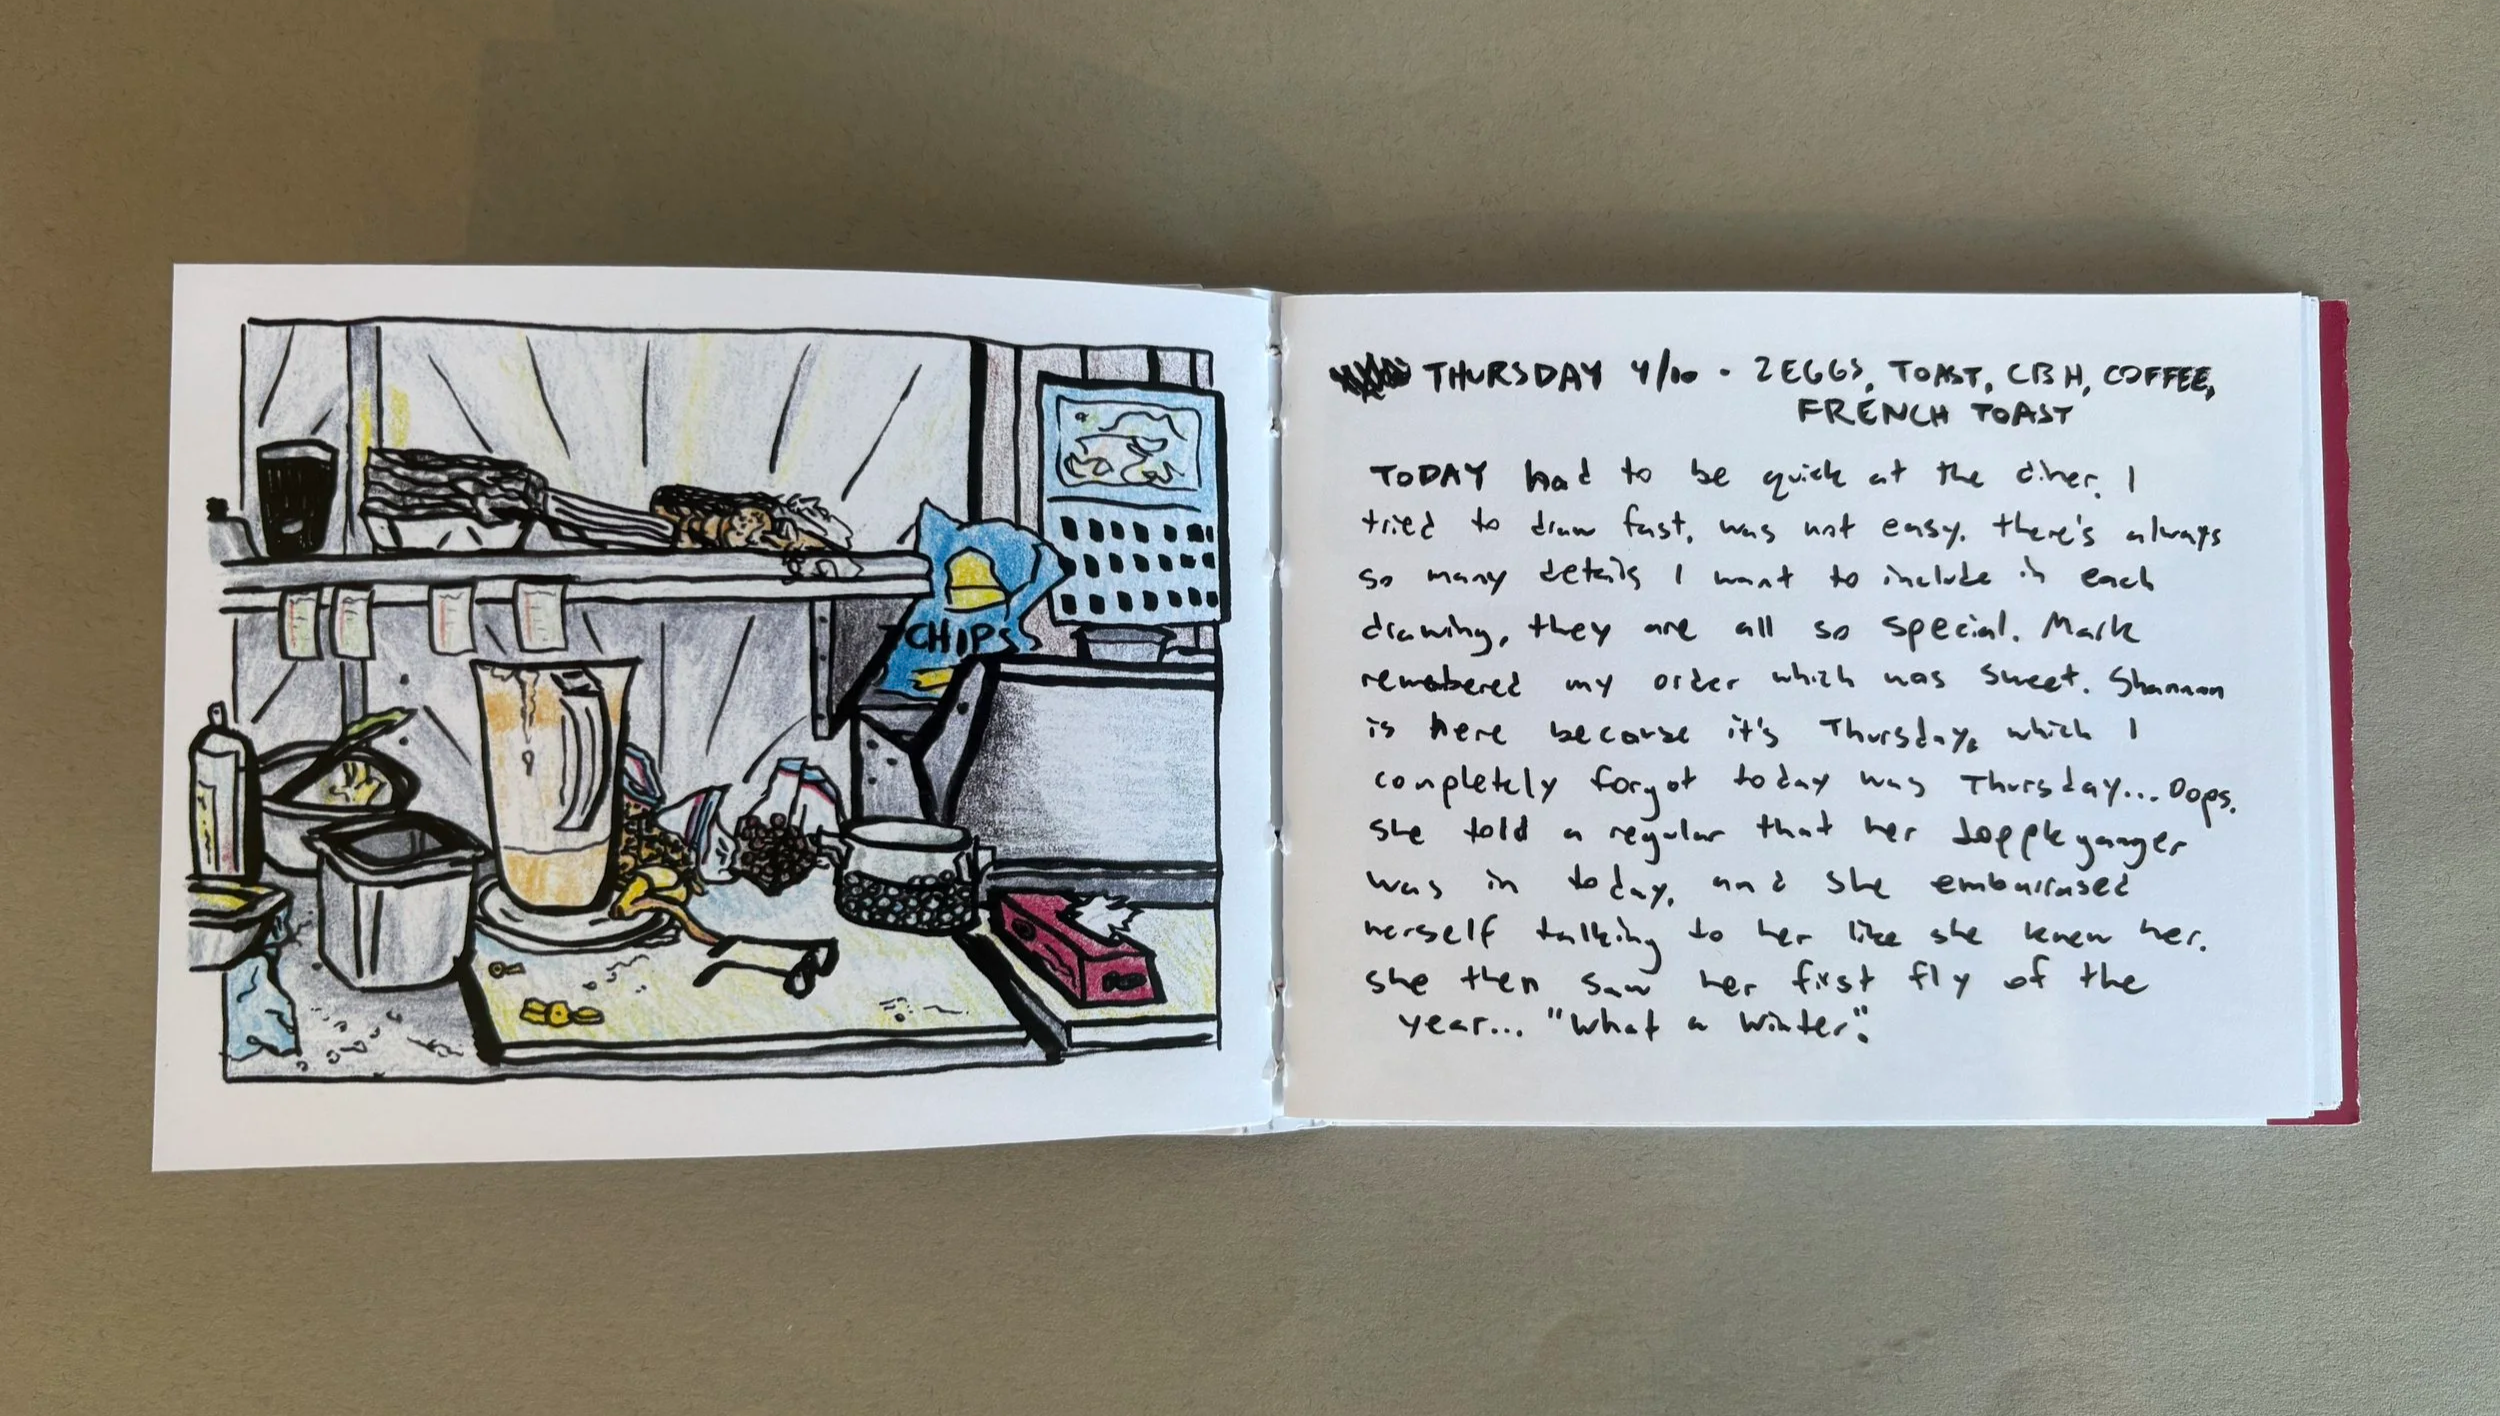 CHIPS
THURSDAY 4/10 - 2 EGGS, TOAST, CBH, COFFEE,
FRENCH TOAST
TODAY had to be quick at the diner. I
tried to draw fast, was not easy. there's always
so many details I want to include in each
drawing, they are all so special. Mark
remembered my order which was sweet. Shannon
is here because it's Thursday, which I
completely forgot today was Thursday... Oops.
she told a regular that her doppleganger
was in today, and she embarrased
herself talking to her like she knew her.
she then saw her first fly of the
year... "What a winter".